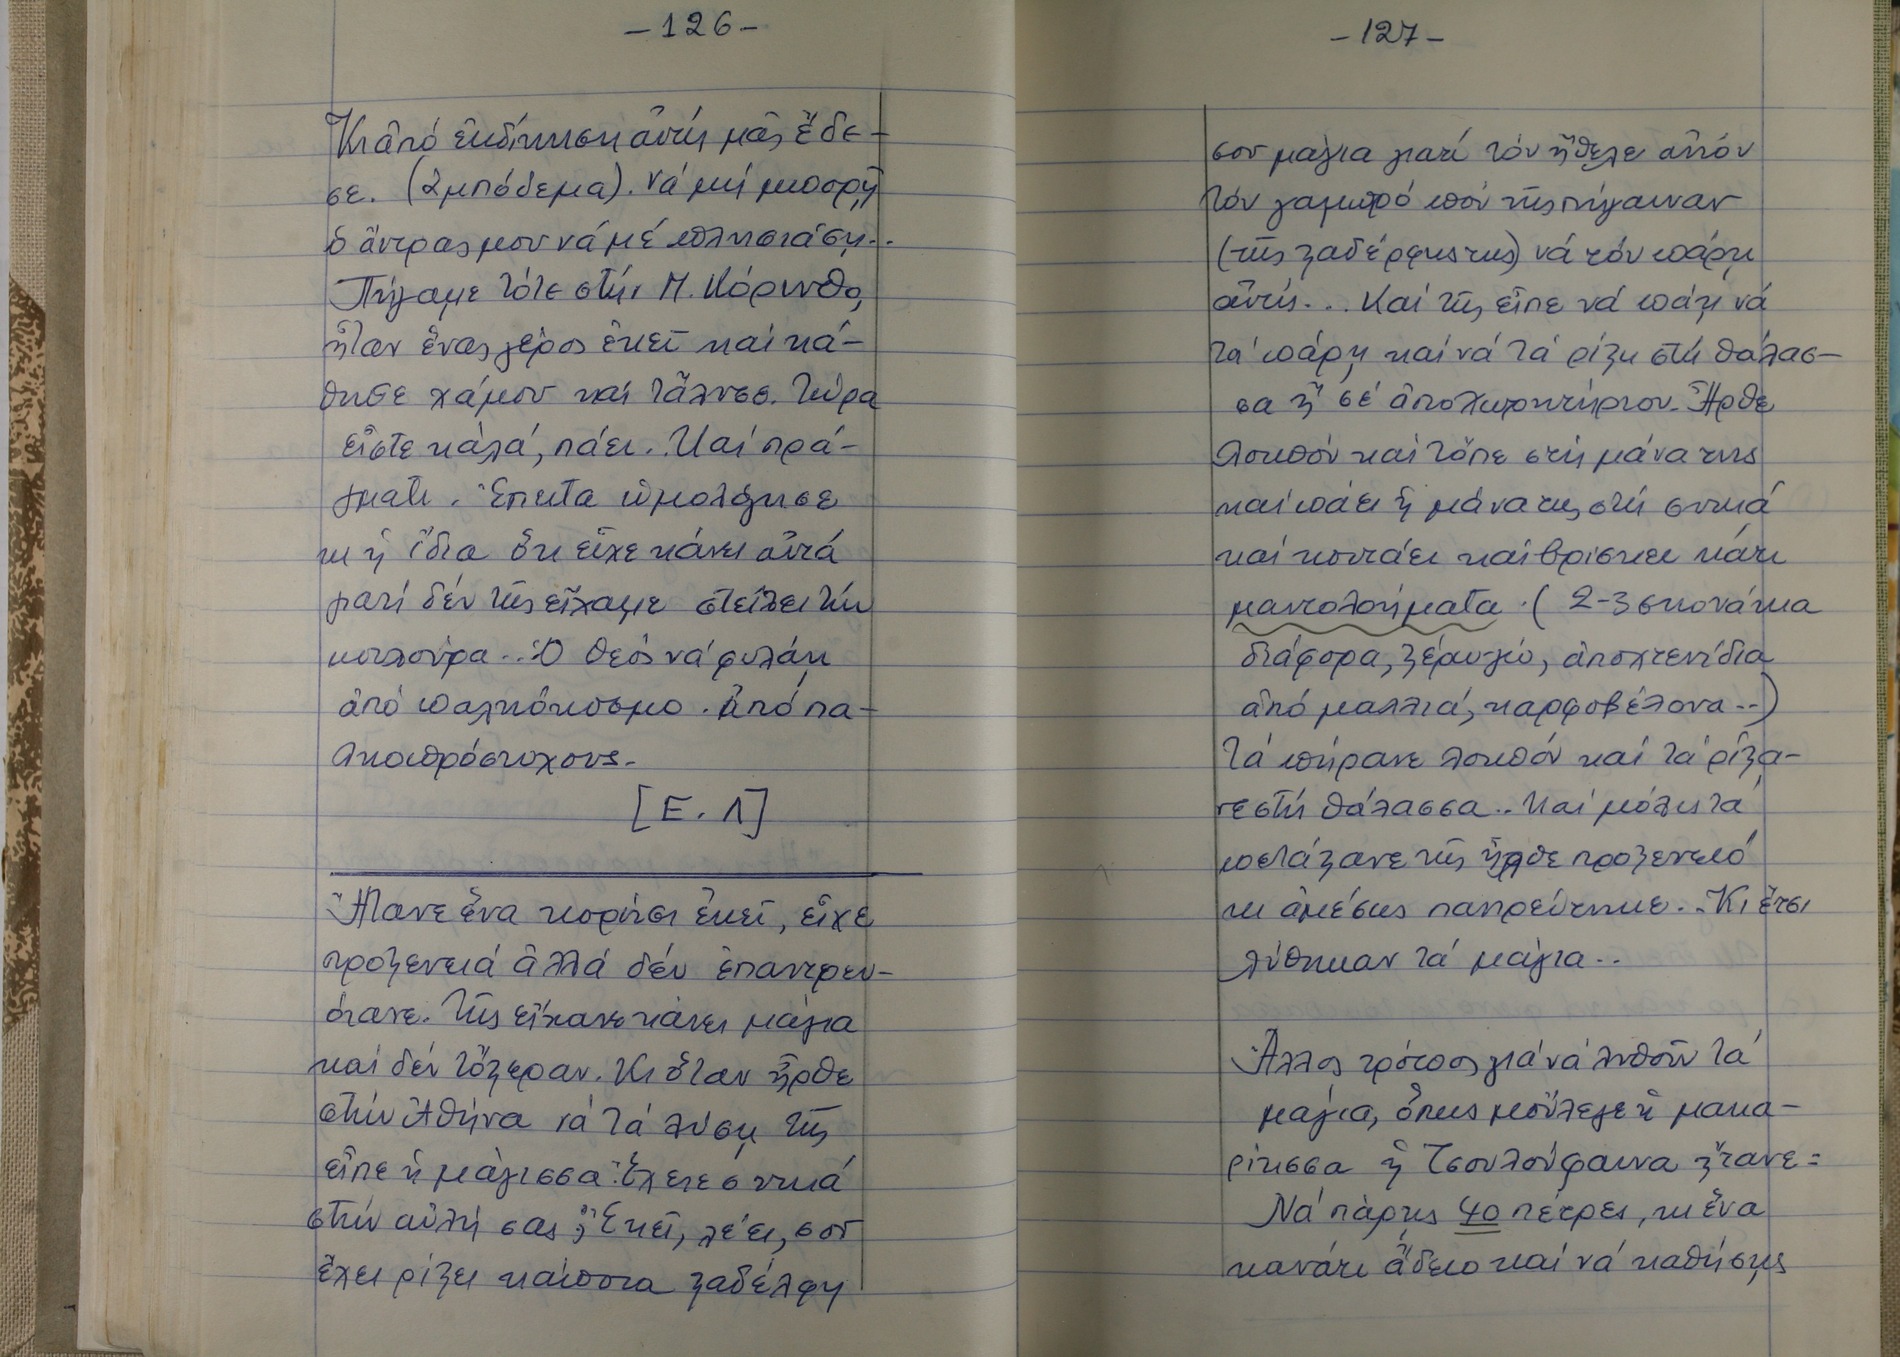 -126-
Κι ἀπό ἐκδίκηση αὐτή μᾶς ἔδε-
σε. (ἀμπόδεμα). νά μή μπορῇ
ὁ ἄντρας μου νά μέ πλησιάσῃ..
Πήγαμε τότε στήν Π. Κόρινθο,
ἦταν ἕνας γέρος ἐκεῖ καί κά-
θησε χάμου καί τἄλυσε. Τώρα
εἶστε καλά, πάει. Καί πρά-
γματι. Ἔπειτα ὡμολόγησε
κι ἡ ἴδια ὅτι εἶχε κάνει αὐτά
γιατί δέν τῆς εἴχαμε στείλει τήν
κουλούρα... Ὁ θεός νά φυλάῃ
ἀπό παληόκοσμο. Ἀπό πα-
ληοπρόστυχους.
[Ε. Λ]
Ἤτανε ἕνα κορίτσι ἐκεῖ, εἶχε
προξενειά ἀλλά δέν ἐπαντρευ-
ότανε. Τῆς εἴχανε κάνει μάγια
καί δέν τὄξεραν. Κι ὅταν ἦρθε
στήν Ἀθήνα νά τά λύσῃ τῆς
εἶπε ἡ μάγισσα: Ἔχετε συκιά
στήν αὐλή σας; Ἐκεῖ, λέει, σοῦ
ἔχει ρίξει κάποια ξαδέλφη
-127-
σου μάγια γιατί τόν ἤθελε αὐτόν
τόν γαμπρό πού τῆς πήγαιναν
(τῆς ξαδέρφης της) νά τόν πάρῃ
αὐτή... Καί τῆς εἶπε νά πάῃ νά
τά πάρῃ καί νά τά ρίξῃ στή θάλασ-
σα ἤ σέ ἀποχωρητήριον. Ἦρθε
λοιπόν καί τὄπε στή μάνα της
καί πάει ἡ μάνα της στή συκιά
καί κοιτάει καί βρίσκει κάτι
μαντολοήματα. (2-3 σκονάκια
διάφορα, ξέρω γώ, ἀποχτενίδια
ἀπό μαλλιά, καρφοβέλονα..)
Τά πήρανε λοιπόν καί τά ρίξα-
νε στή θάλασσα.. Καί μόλις τά
πετάξανε τῆς ἦρθε προξενειό
κι ἀμέσως παντρεύτηκε.. Κι ἔτσι
λύθηκαν τά μάγια..
Ἄλλος τρόπος γιά νά λυθοῦν τά
μάγια, ὅπως μοὔλεγε ἡ μακα-
ρίτισσα ἡ Τσουλούφαινα ἤτανε:
Νά πάρῃς 40 πέτρες, κι ἕνα
κανάτι ἄδειο καί νά καθήσῃς